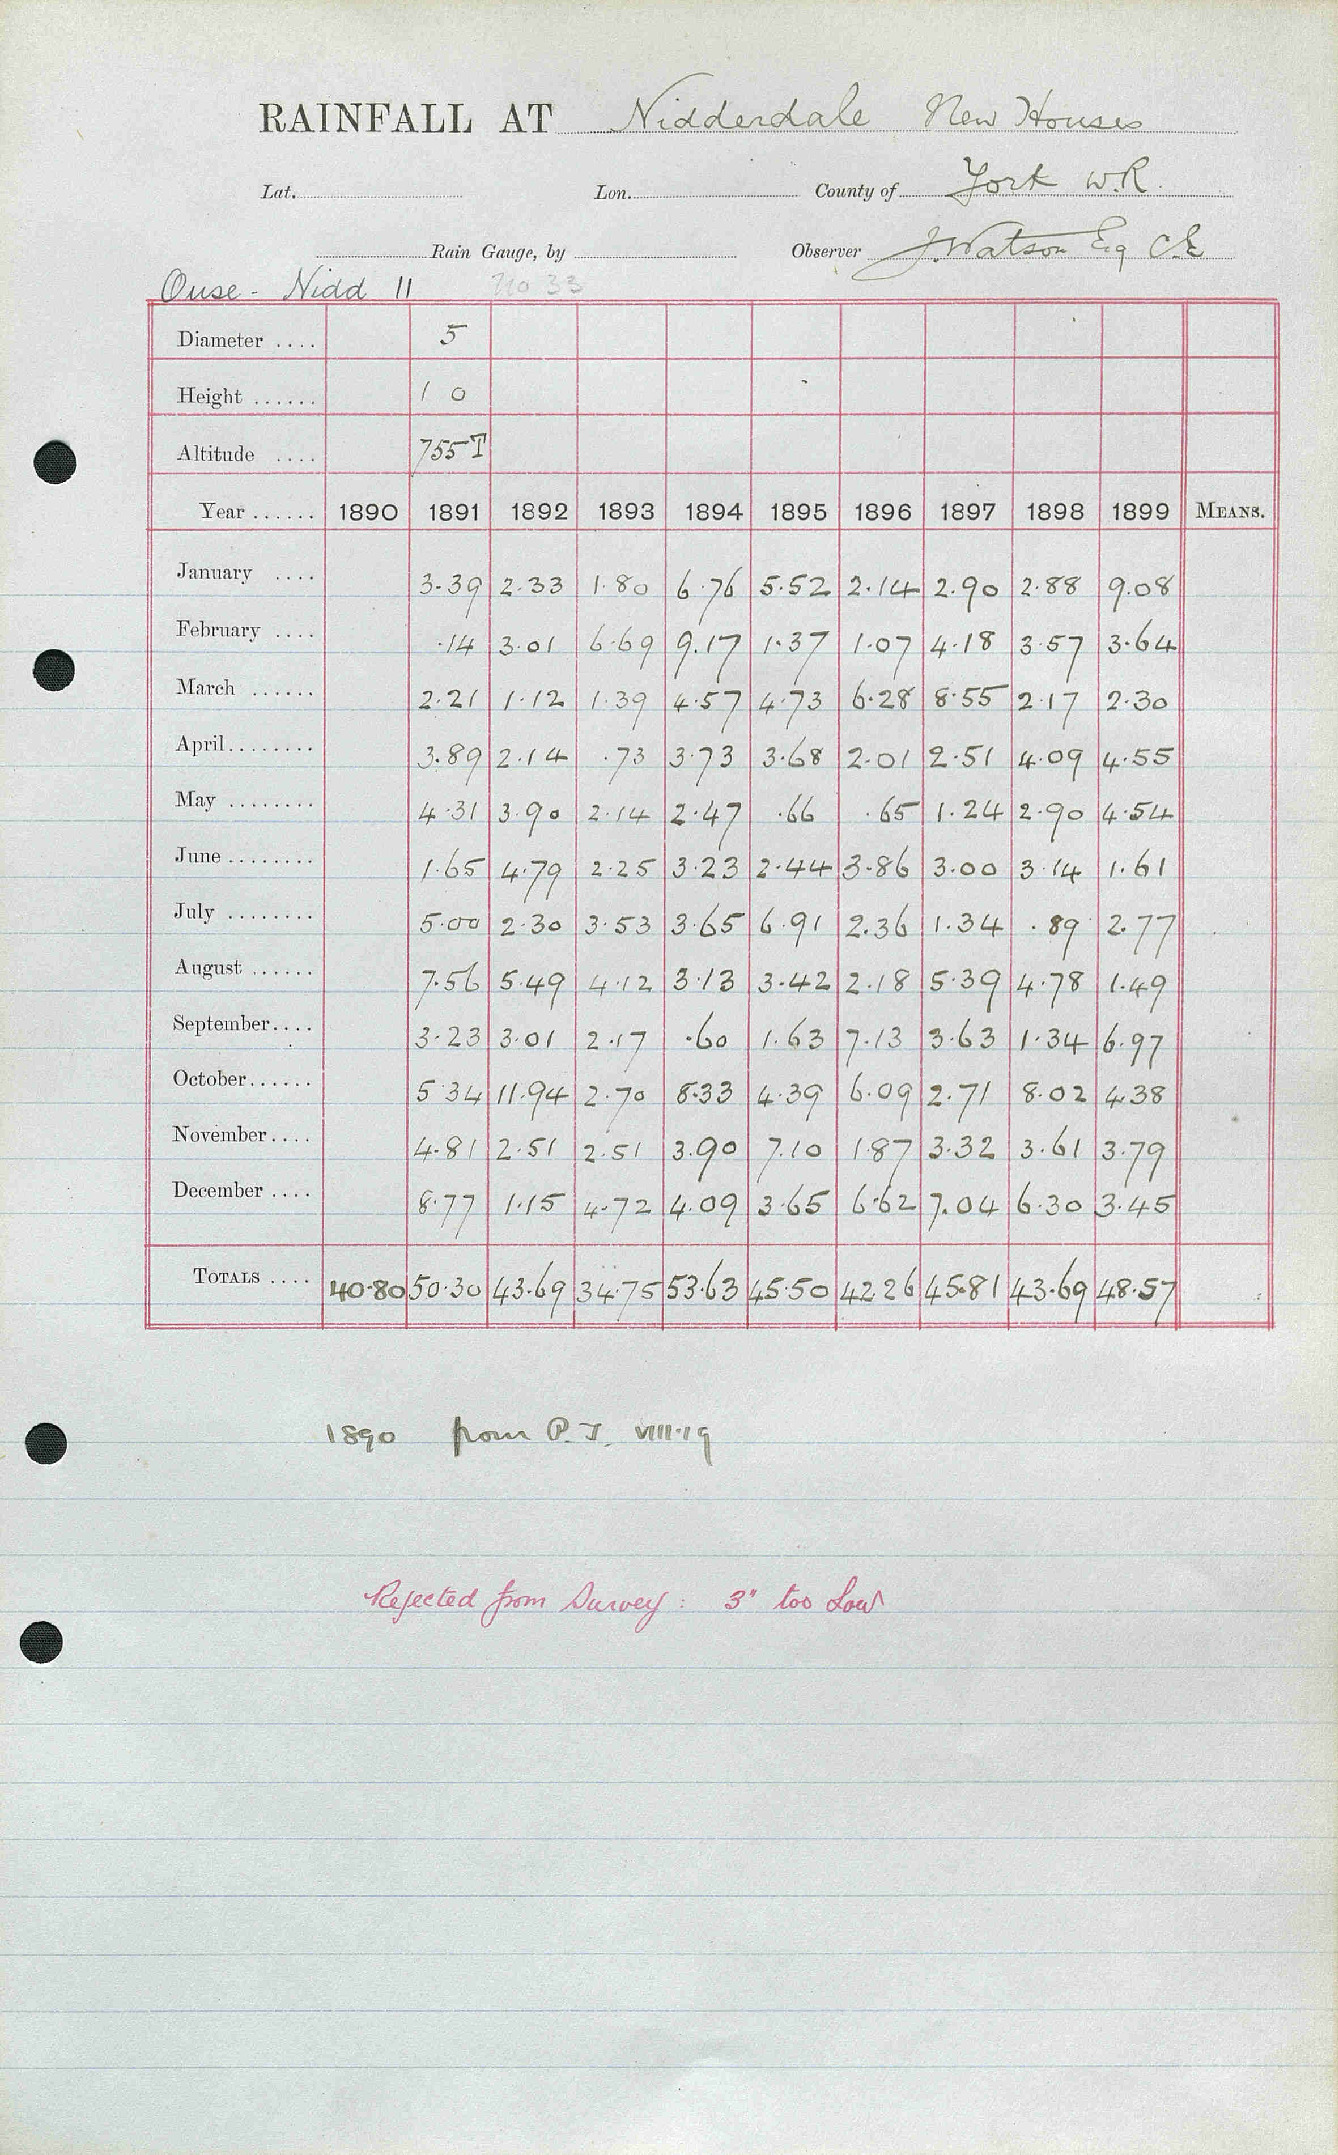 RAINFALL AT Nidderdale New Houses
Lat. Lon. County of York W.R.
Rain Gauge, by Observer J. Watson Esq C.E.
Ouse - Nidd II No 33
Diameter .... 5
Height ...... 1 0
Altitude .... 755 T
Year ...... 1890 1891 1892 1893 1894 1895 1896 1897 1898 1899 MEANS.
January .... 3.39 2.33 1.80 6.76 5.52 2.14 2.90 2.88 9.08
February .... .14 3.01 6.69 9.17 1.37 1.07 4.18 3.57 3.64
March ...... 2.21 1.12 1.39 4.57 4.73 6.28 8.55 2.17 2.30
April ........ 3.89 2.14 .73 3.73 3.68 2.01 2.51 4.09 4.55
May ........ 4.31 3.90 2.14 2.47 .66 .65 1.24 2.90 4.54
June ........ 1.65 4.79 2.25 3.23 2.44 3.86 3.00 3.14 1.61
July ........ 5.00 2.30 3.53 3.65 6.91 2.36 1.34 .89 2.77
August ...... 7.56 5.49 4.12 3.13 3.42 2.18 5.39 4.78 1.49
September.... 3.23 3.01 2.17 .60 1.63 7.13 3.63 1.34 6.97
October...... 5.34 11.94 2.70 8.33 4.39 6.09 2.71 8.02 4.38
November.... 4.81 2.51 2.51 3.90 7.10 1.87 3.32 3.61 3.79
December .... 8.77 1.15 4.72 4.09 3.65 6.62 7.04 6.30 3.45
TOTALS .... 40.80 50.30 43.69 34.75 53.63 45.50 42.26 45.81 43.69 48.57
1890 from P.T. VIII.19
Rejected from Survey: 3" too Low